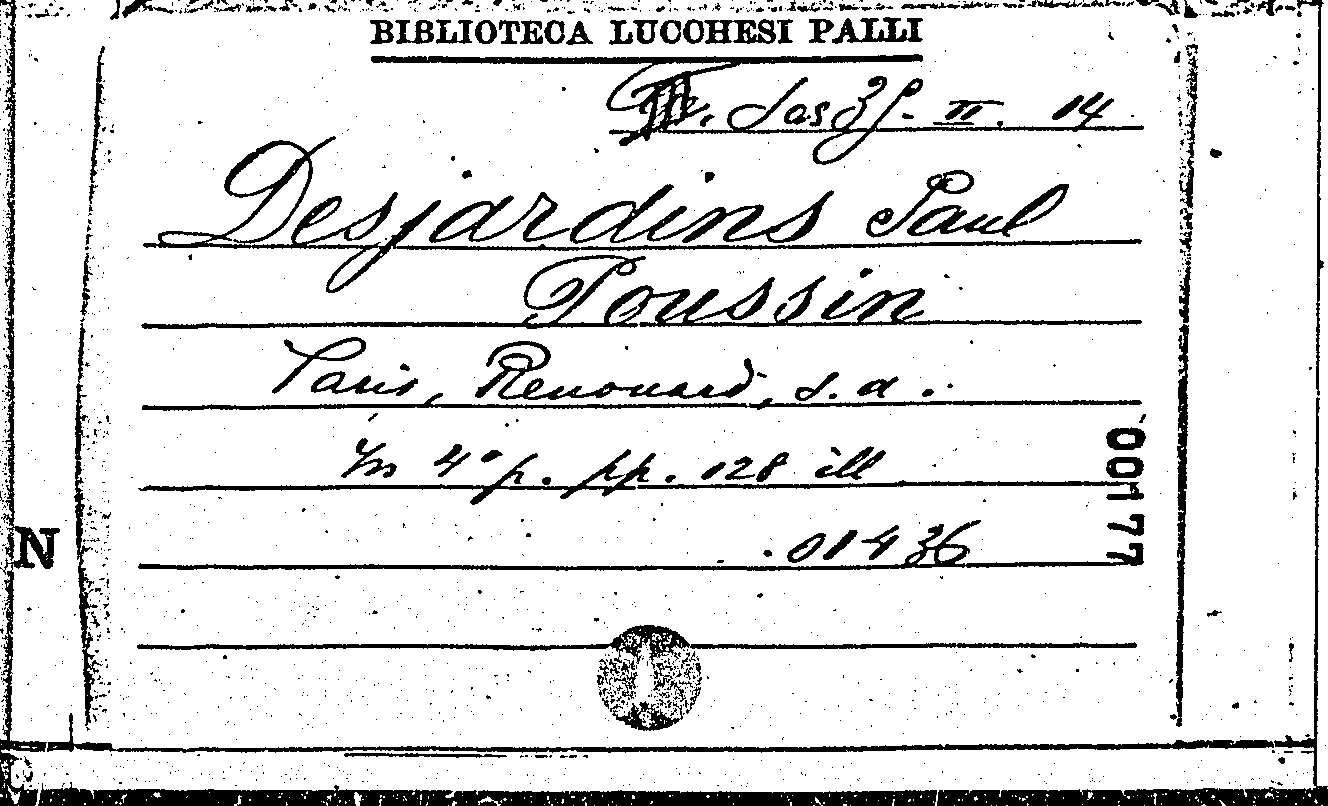 BIBLIOTECA LUCCHESI PALLI
II. 14
Desjardins Paul
Poussin
Paris, Renouard, s. a.
In 4° p. pp. 128 ill
01436
00177
N